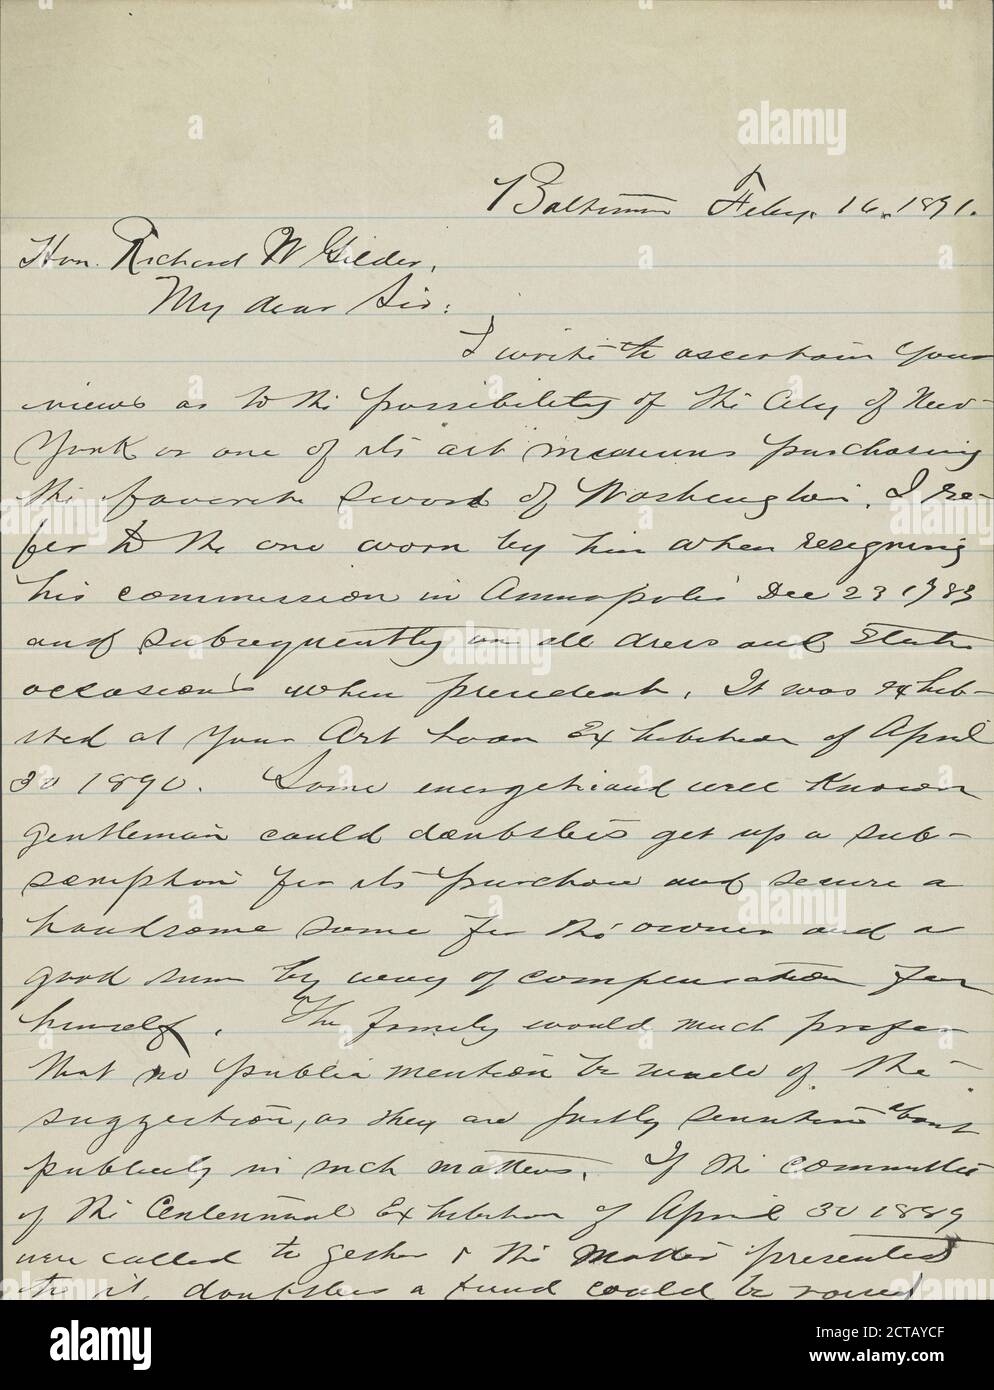 Baltimore Feby. 16, 1891.
Hon. Richard W Gilder,
My dear Sir:
I write to ascertain your
views as to the possibility of the City of New-
York or one of its "art" museums purchasing
the favorite sword of Washington. I re-
fer to the one worn by him when resigning
his commission in Annapolis Dec 23 1783
and subsequently on all dress and State
occasions when president. It was exhib-
ited at your Art Loan Exhibition of April
30 1890. Some energetic and well known
gentleman could doubtless get up a sub-
scription for its purchase and secure a
handsome some for the owner and a
good sum by way of compensation for
himself. The family would much prefer
that no public mention be made of the
suggestion, as they are justly sensitive about
publicity in such matters. If the committee
of the Centennial Exhibition of April 30 1889
were called together & the matter presented
to it, doubtless a fund could be raised
alamy
Image ID: 2CTAYCF
www.alamy.com